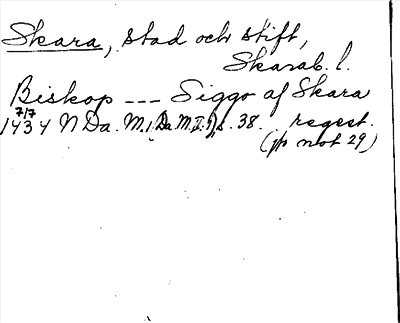 Skara, stad och stift,
Skarab. l.
Biskop --- Siggo af Skara
7/7
1434 N Da. M., Da. M. I. s. 38. regest.
(jfr not 29)